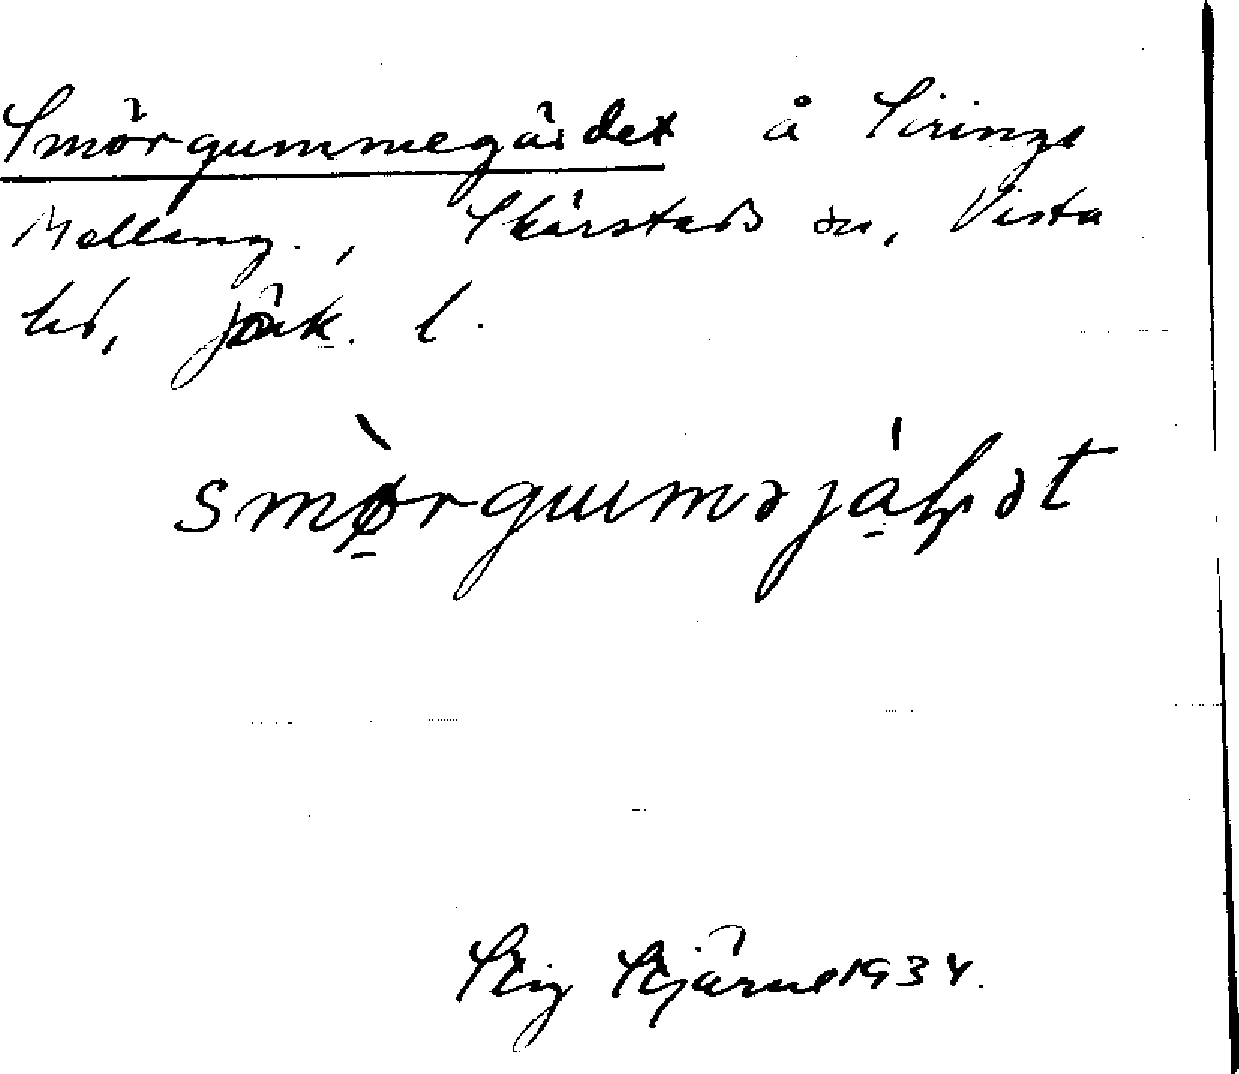 Smörgummegärdet å Siringe
Mellang., Skärstads sn, Vista
hd, Jönk. l.
smørguməjáḥət
Stig Stjärne 1934.